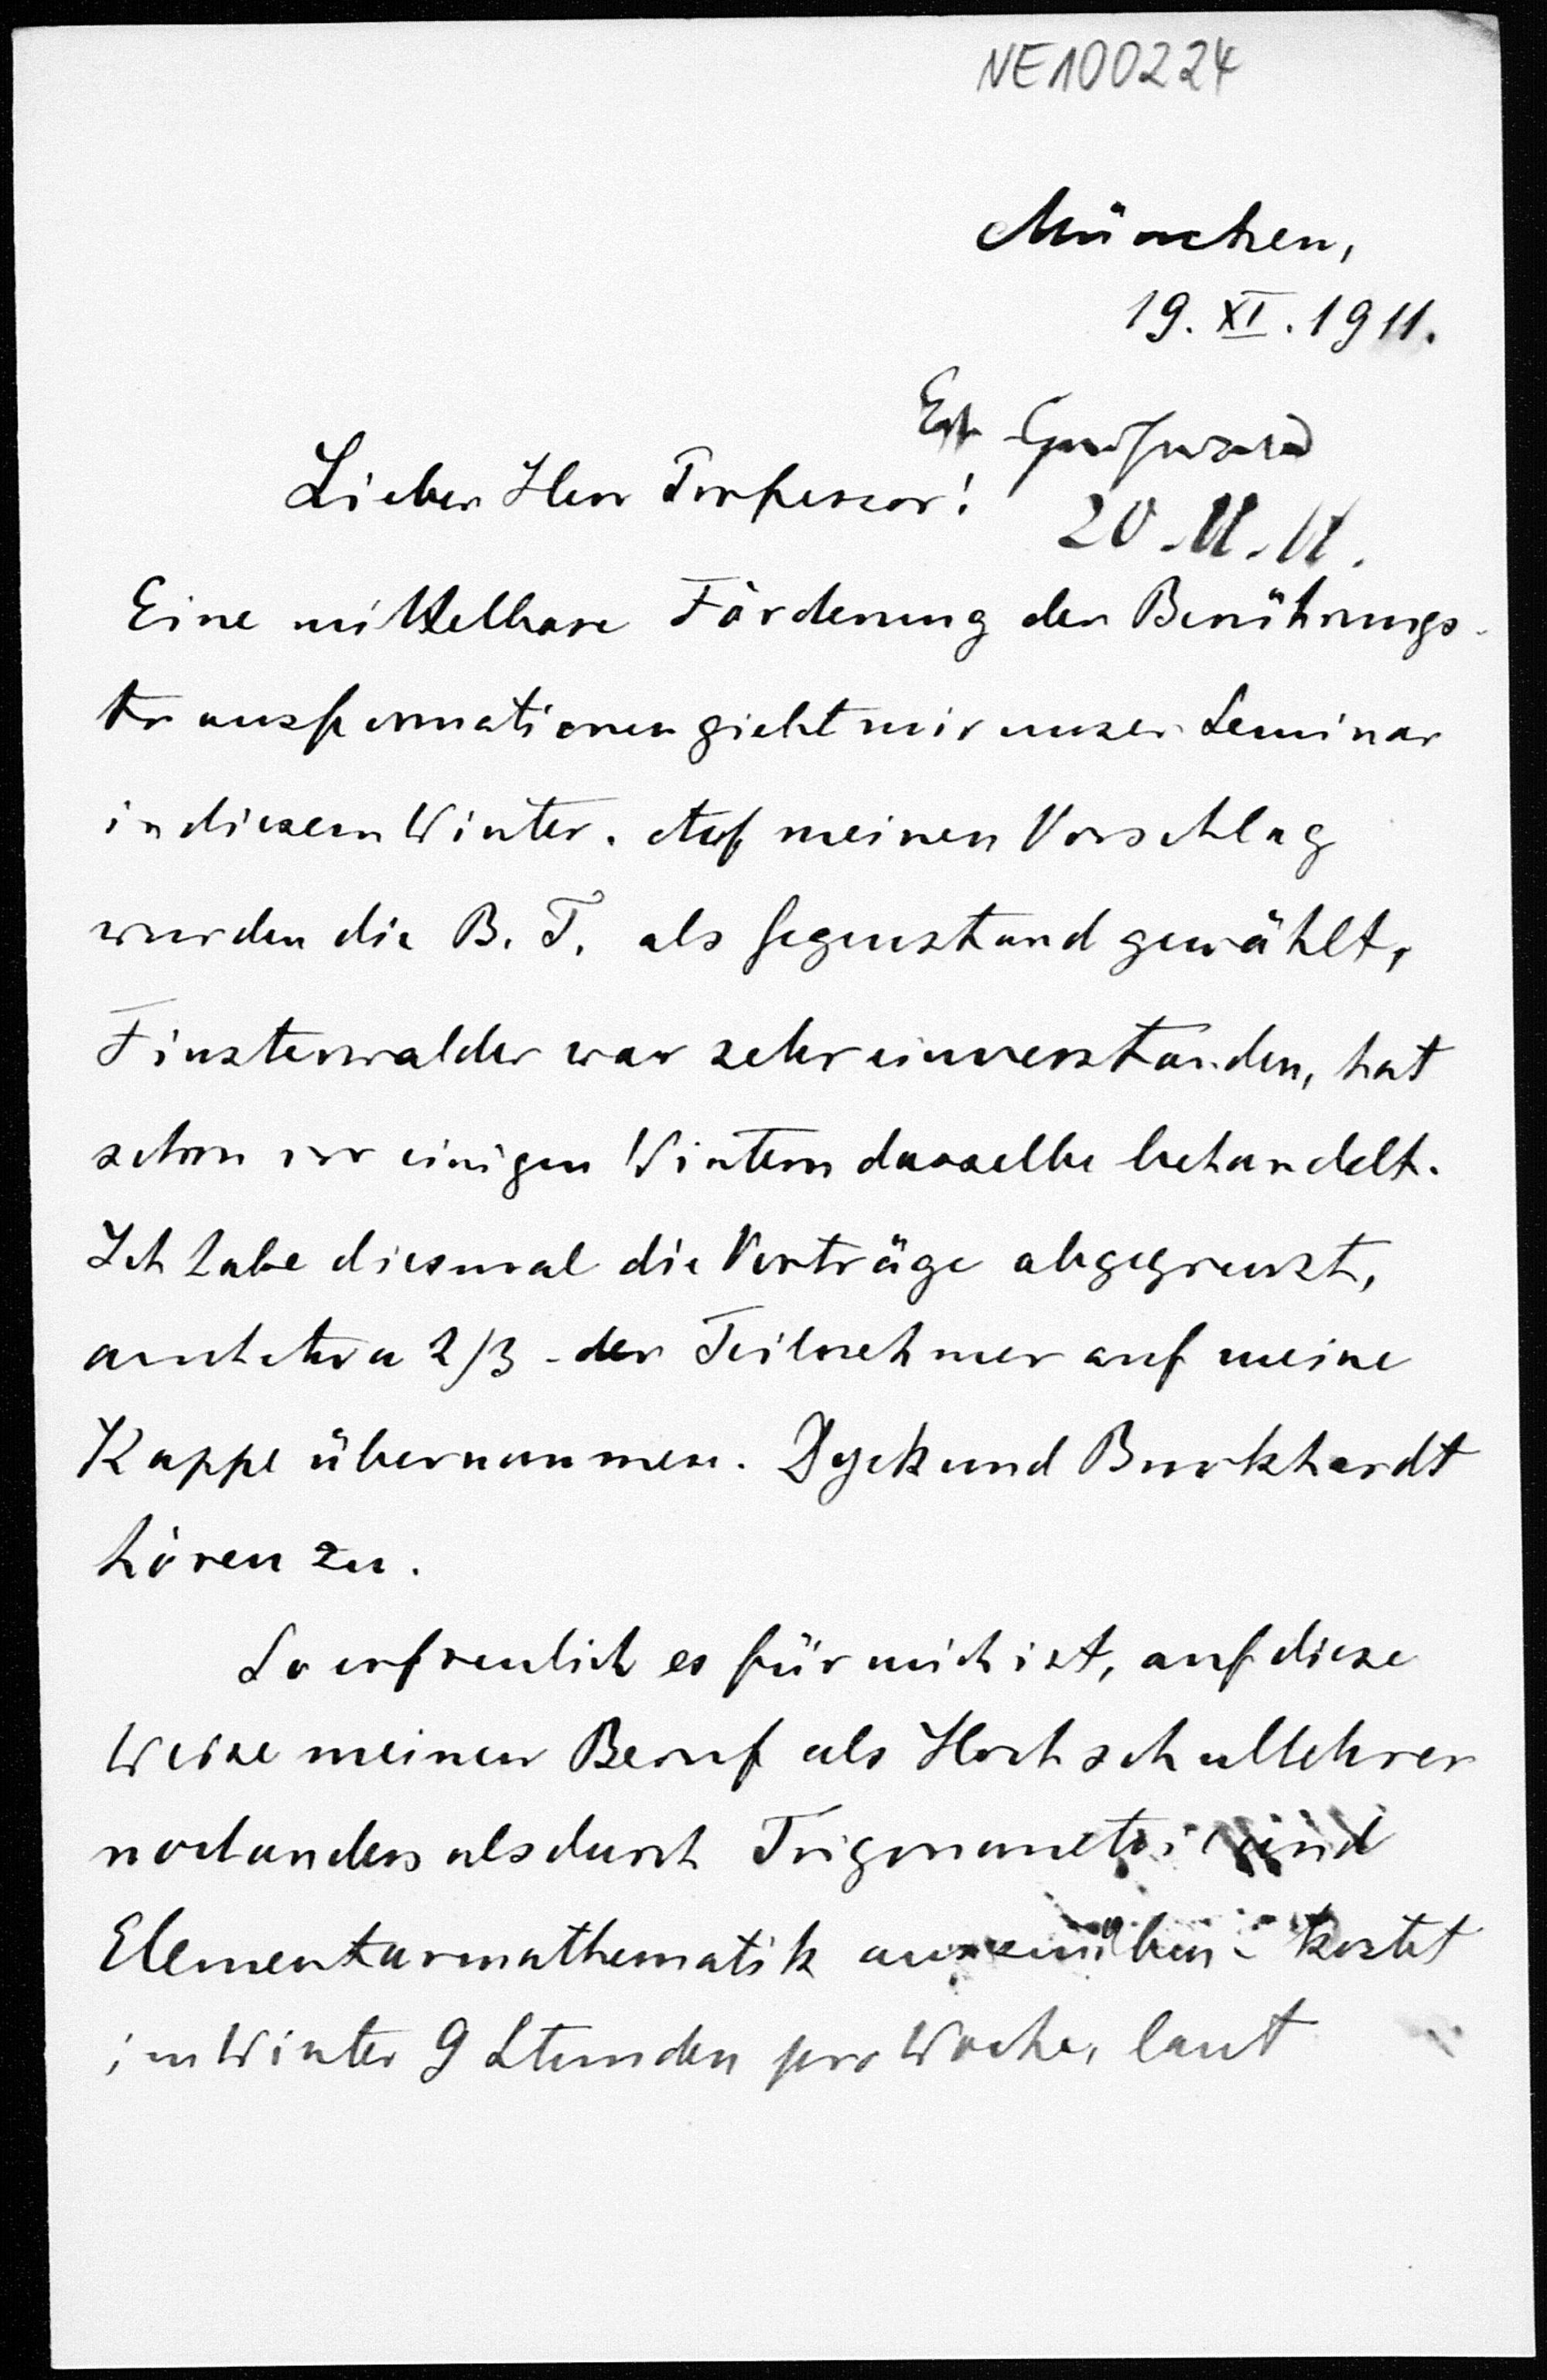 NE100224
München,
19. XI. 1911.
Erh. Greifswald
Lieber Herr Professor!
20. 11. 11.
Eine mittelbare Förderung der Berührungs-
transformationen giebt mir unser Seminar
in diesem Winter. Auf meinen Vorschlag
wurden die B. T. als Gegenstand gewählt,
Finsterwalder war sehr einverstanden, hat
schon vor einigen Wintern dasselbe behandelt.
Ich habe diesmal die Vorträge abgegrenzt,
auch etwa 2/3 der Teilnehmer auf meine
Kappe übernommen. Dyck und Burkhardt
hören zu.
So erfreulich es für mich ist, auf diese
Weise meinen Beruf als Hochschullehrer
noch anders als durch Trigonometrie und
Elementarmathematik auszuüben - kostet
im Winter 9 Stunden pro Woche, laut